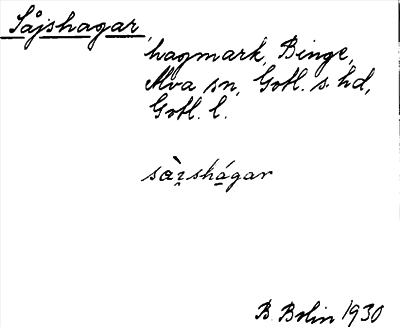 Såjshagar,
hagmark, Binge,
Alva sn, Gotl. s. hd,
Gotl. l.
sàɪshágar
B. Bolin 1930